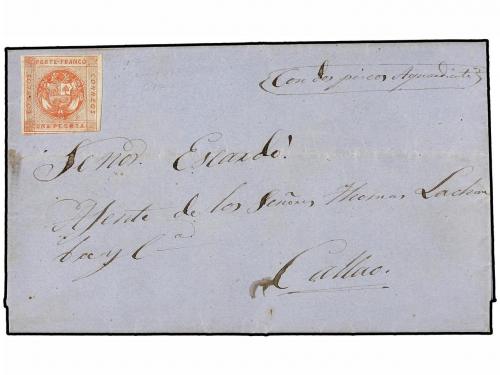 PORTE FRANCO
CORREOS
CORREOS
UNA PESETA
Con dos piscos Aguardiente
Señor Escardó
Agente de los Señores Thomas Lachambre
y Cª
Callao.